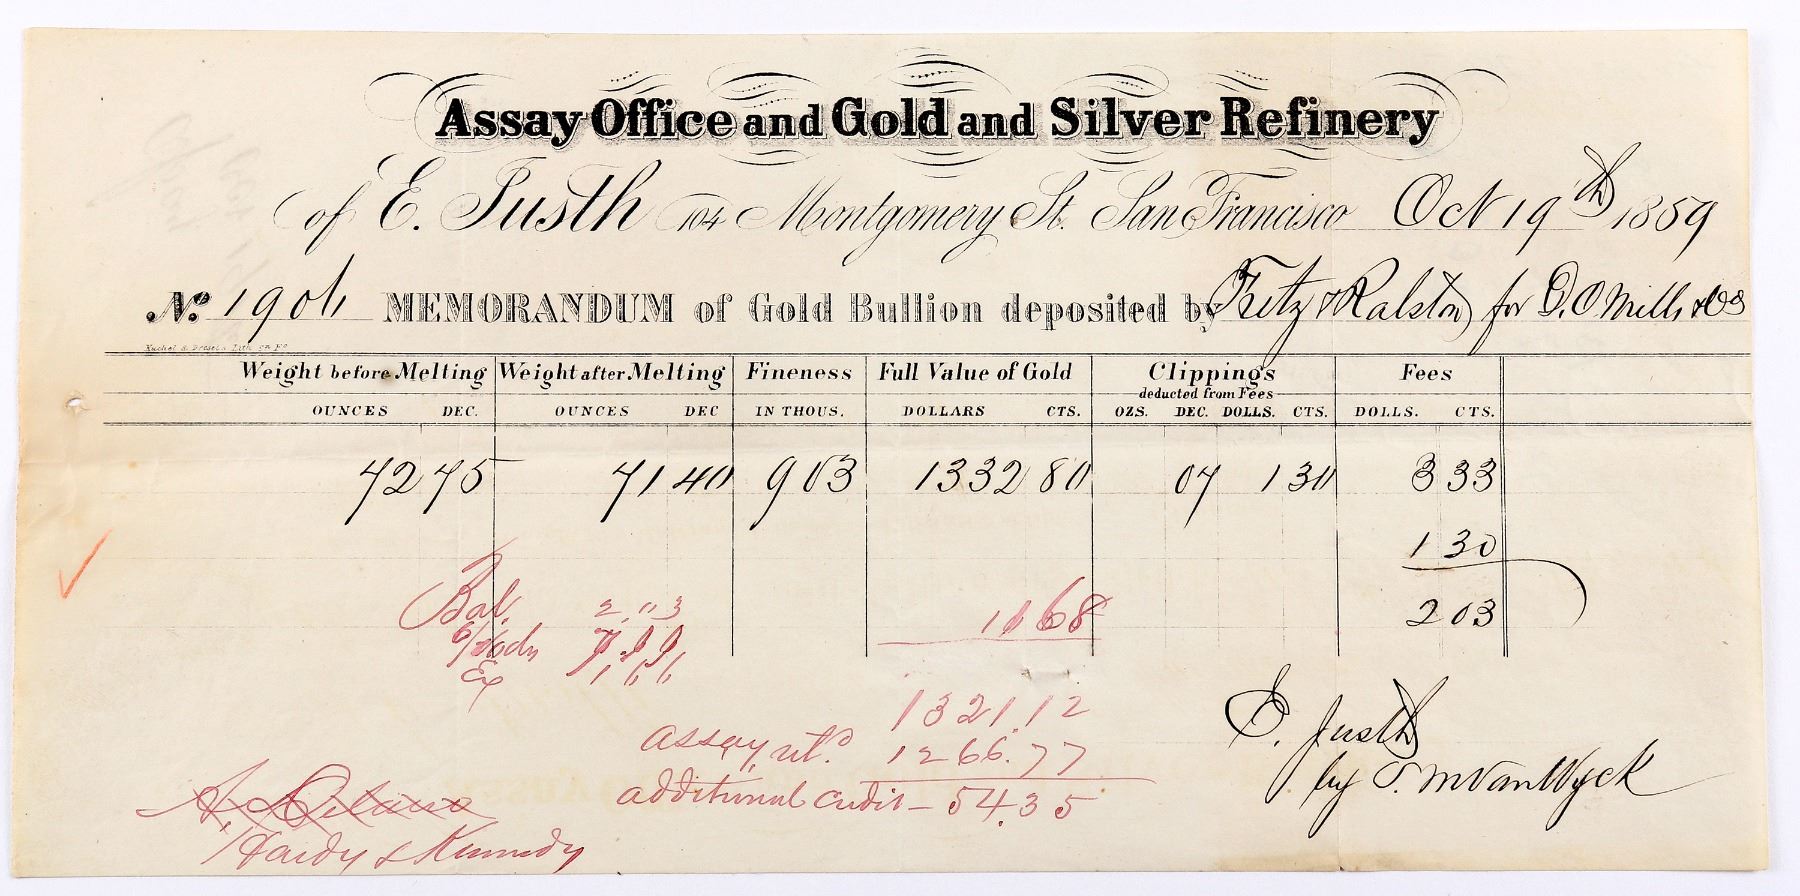 Assay Office and Gold and Silver Refinery
of E. Justh 104 Montgomery St. San Francisco Oct 19th 1859
No. 1904 MEMORANDUM of Gold Bullion deposited by Fretz & Ralston for D.O. Mills & Co
Kuchel & Dresel's Lith. S. F.
Weight before Melting Weight after Melting Fineness Full Value of Gold Clippings Fees
deducted from Fees
OUNCES DEC. OUNCES DEC IN THOUS. DOLLARS CTS. OZS. DEC. DOLLS. CTS. DOLLS. CTS.
72 75 71 40 903 1332 80 07 1 30 3 33
1 30
Bal. 2.03 11 68 2 03
Ex
1321.12
assay rtd 1266.77
additional credit - 54.35
E. Justh
by T. M VanWyck
A. Delano
Hardy & Kennedy